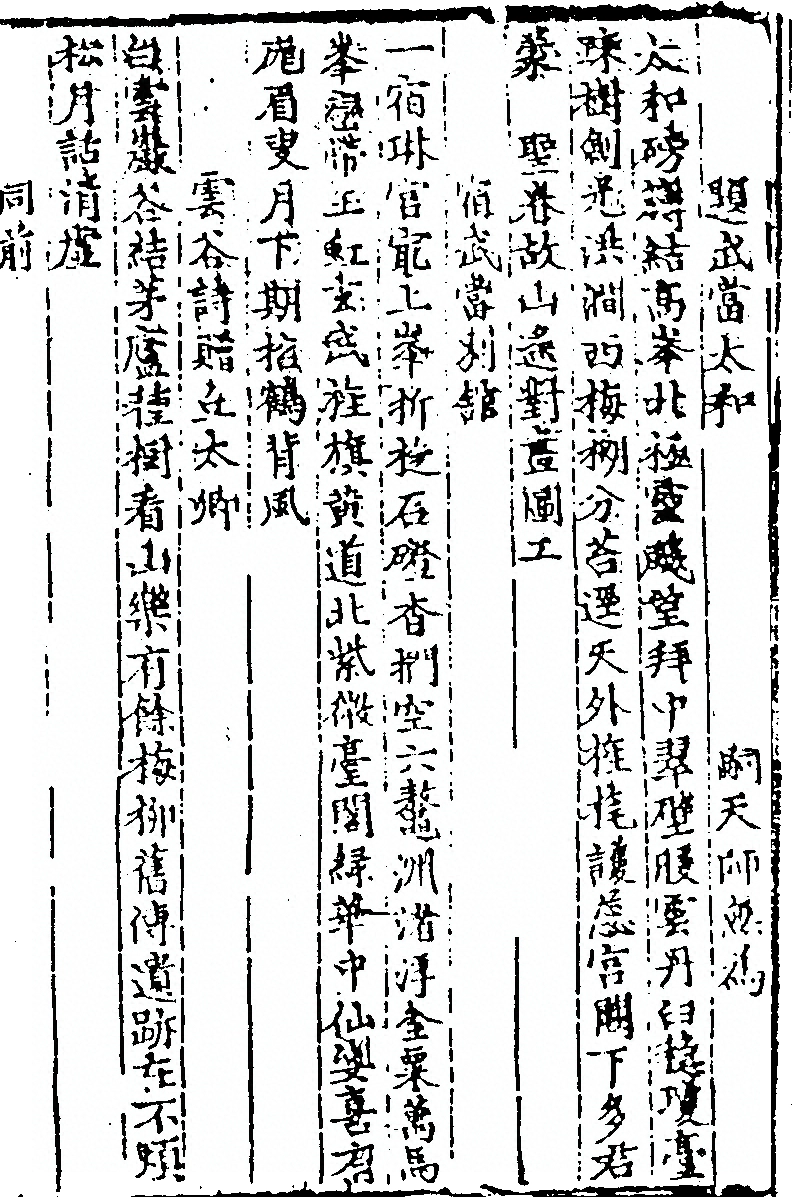 題武當太和 嗣天師無為
太和磅礴結高峯北極靈望拜中翠磴腰雲丹臼瓊臺
珠樹劍光洪澗西梅栁分苔逕天外旌旄護蘂宫闕下多君
蒙 聖眷故山遥對畫圖工
宿武當别舘
一宿琳宫上峯折旋石磴杳捫空六鼇洲渚浮金粟萬馬
峯巒帶玉虹玄武旌旗黃道北紫微臺閣緑華中仙婆喜有
庬眉叟月下期招鶴背風
雲谷詩贈丘太卿
白雲巖谷結茅廬種樹看山樂有餘梅栁舊傳遺跡在不煩
松月話清虛
同前